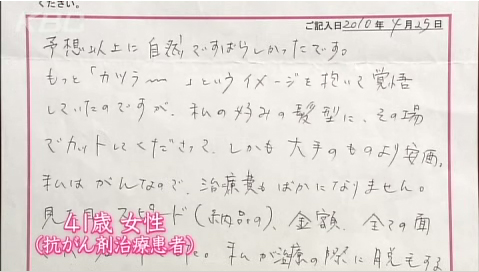 ください。
ご記入日2010年4月29日
予想以上に自然ですばらしかったです。
もっと「カツラ〜〜」というイメージを抱いて覚悟
していたのですが、私の好みの髪型に、その場
でカットしてくださって、しかも大手のものより安価。
私はがんなので、治療費もばかになりません。
見た目、スピード(納品の)、金額、全ての面
41歳 女性
(抗がん剤治療患者)
た。私が治療の際に脱毛する